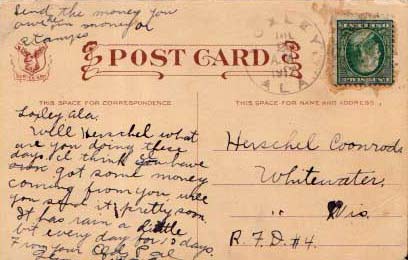 Send the money you
owe me in money or
stamps
POST CARD
LOXLEY
A.M.
1912
ALA.
THIS SPACE FOR CORRESPONDENCE
THIS SPACE FOR NAME AND ADDRESS
Loxley, Ala.
Well Herschel what
are you doing these
days. I think you have
got some money
coming from you will
you send it pretty soon
It has rain a little
bit every day for 10 days.
From your Old Pal
Herschel Coonrods
Whitewater,
" Wis.
R.F.D. #4.